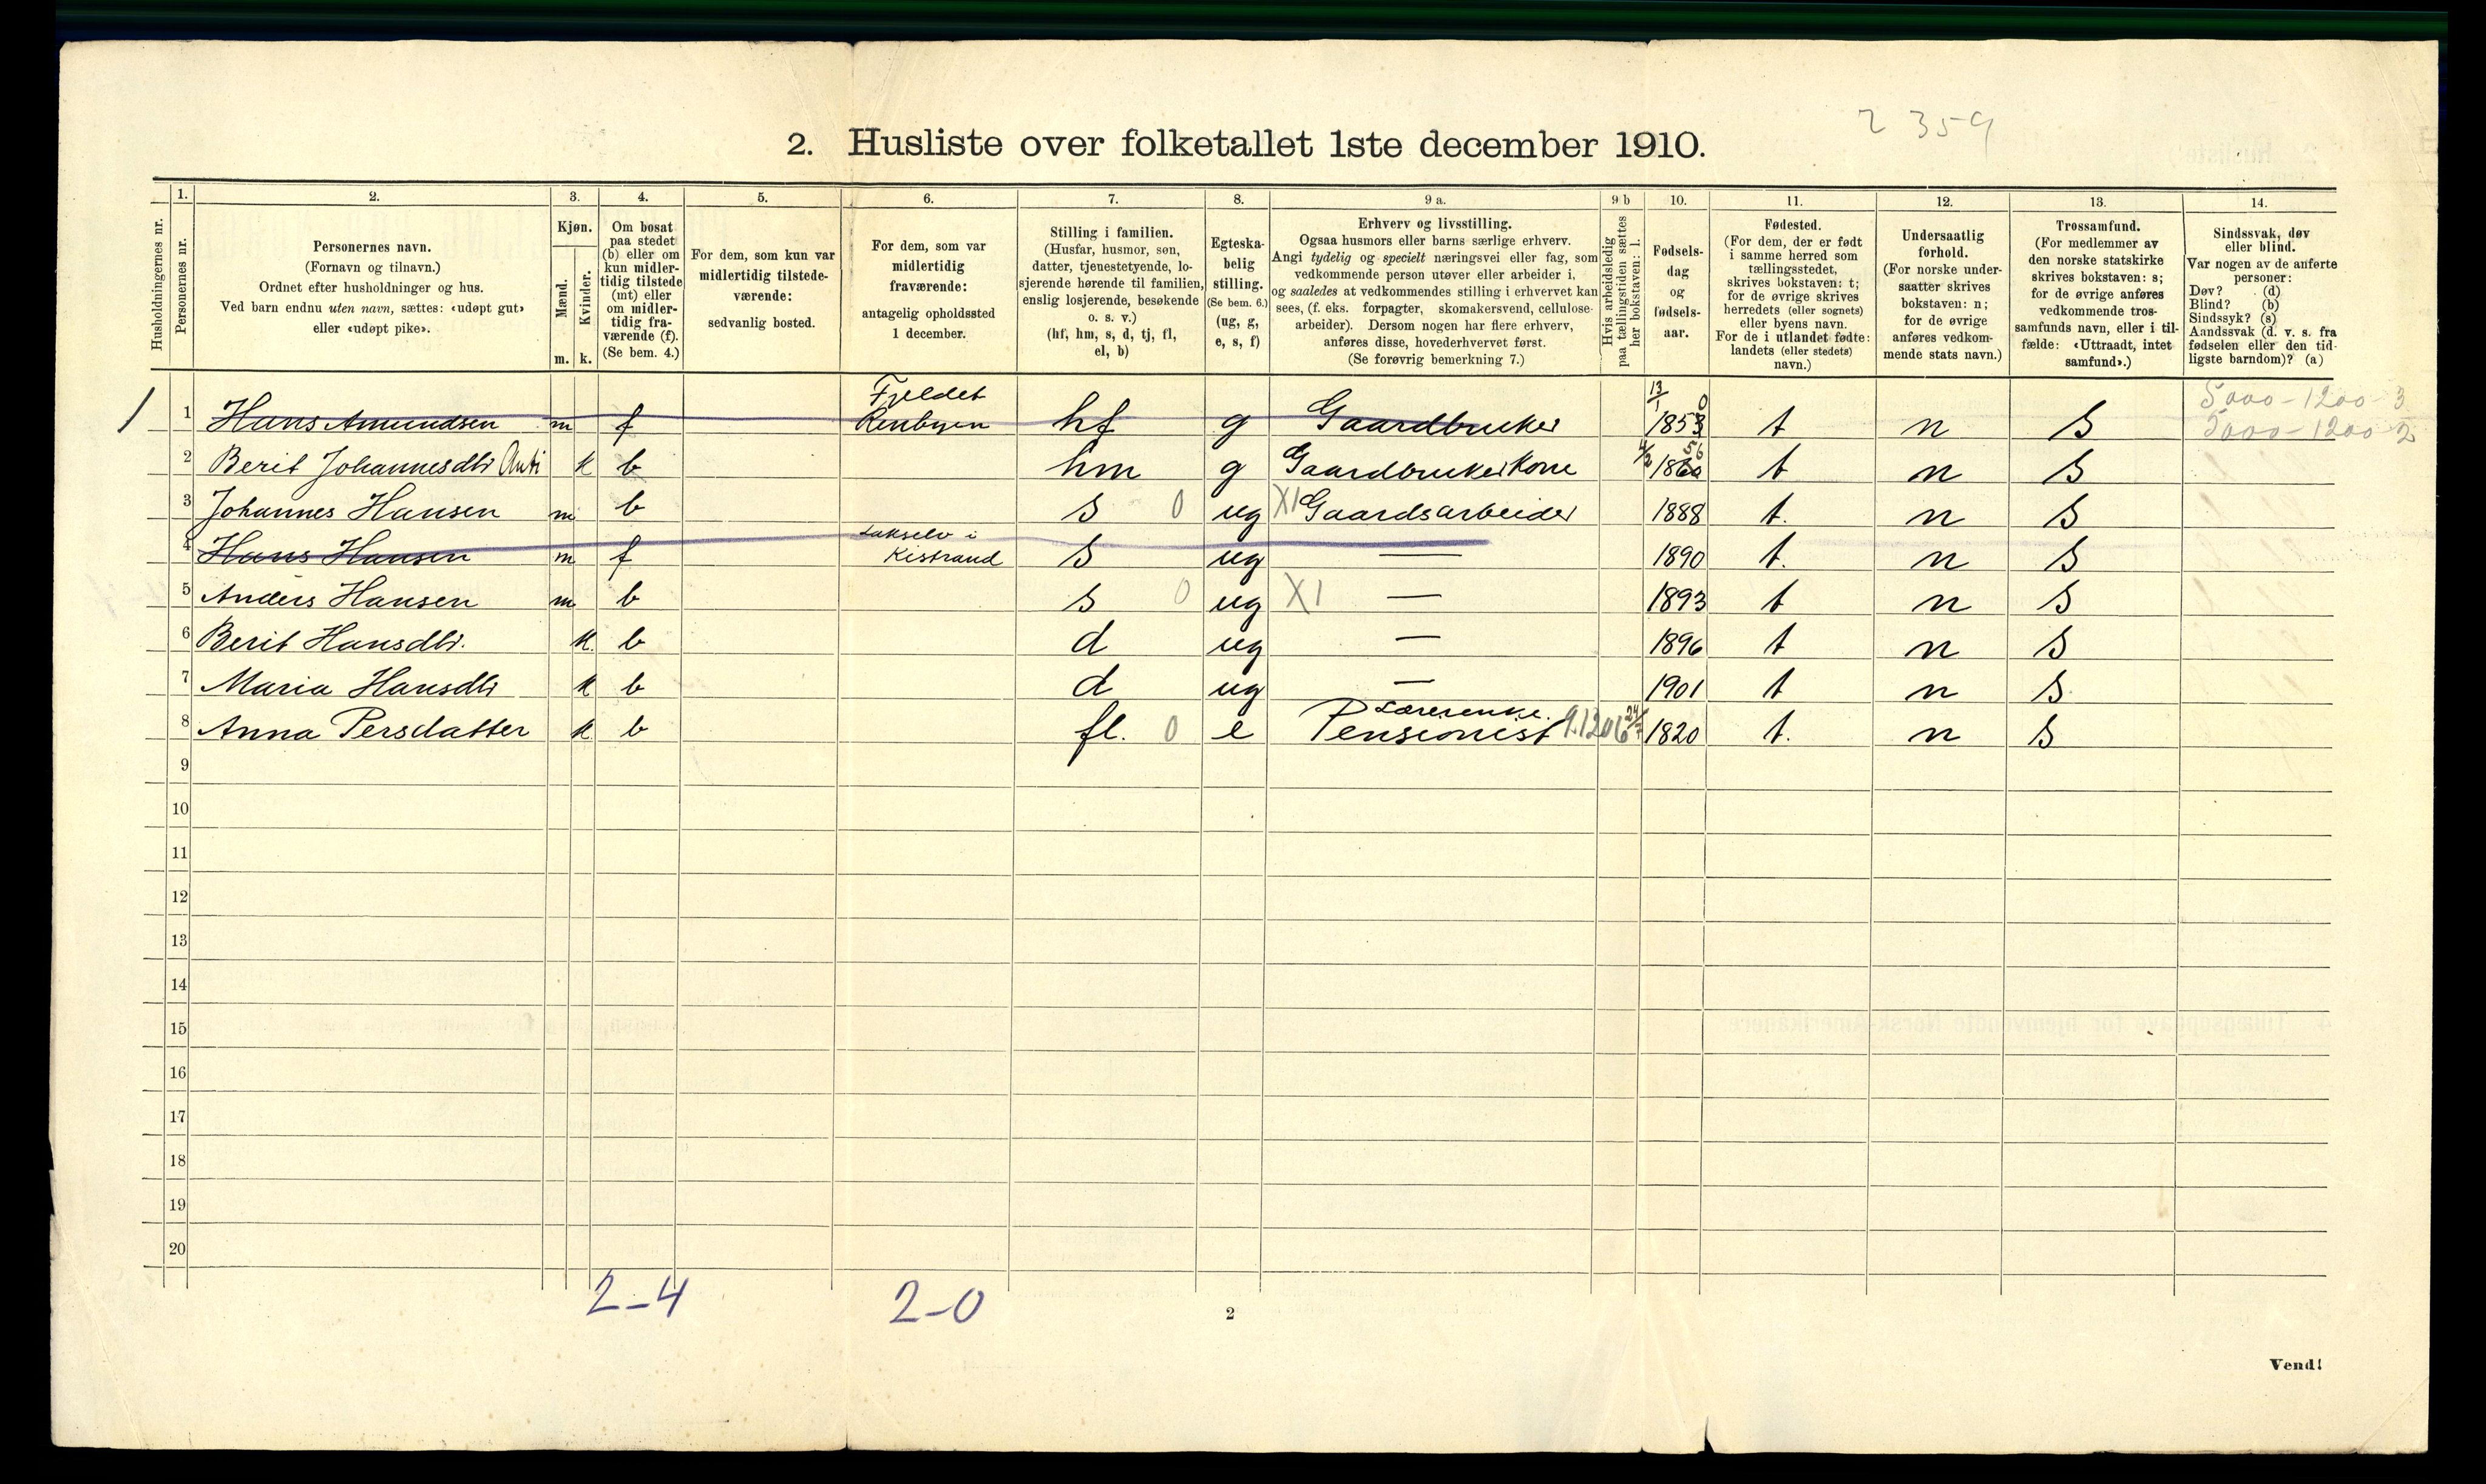 2 359
2. Husliste over folketallet 1ste december 1910.
Husholdningernes nr.
1.
Personernes nr.
2.
Personernes navn.
(Fornavn og tilnavn.)
Ordnet efter husholdninger og hus.
Ved barn endnu uten navn, sættes: «udøpt gut»
eller «udøpt pike».
3.
Kjøn.
Mænd.
Kvinder.
m. k.
4.
Om bosat
paa stedet
(b) eller om
kun midler-
tidig tilstede
(mt) eller
om midler-
tidig fra-
værende (f).
(Se bem. 4.)
5.
For dem, som kun var
midlertidig tilstede-
værende:
sedvanlig bosted.
6.
For dem, som var
midlertidig
fraværende:
antagelig opholdssted
1 december.
7.
Stilling i familien.
(Husfar, husmor, søn,
datter, tjenestetyende, lo-
sjerende hørende til familien,
enslig losjerende, besøkende
o. s. v.)
(hf, hm, s, d, tj, fl,
el, b)
8.
Egteska-
belig
stilling.
(Se bem. 6.)
(ug, g,
e, s, f)
9 a.
Erhverv og livsstilling.
Ogsaa husmors eller barns særlige erhverv.
Angi tydelig og specielt næringsvei eller fag, som
vedkommende person utøver eller arbeider i,
og saaledes at vedkommendes stilling i erhvervet kan
sees, (f. eks. forpagter, skomakersvend, cellulose-
arbeider). Dersom nogen har flere erhverv,
anføres disse, hovederhvervet først.
(Se forøvrig bemerkning 7.)
9 b
Hvis arbeidsledig
paa tællingstiden sættes
her bokstaven: l.
10.
Fødsels-
dag
og
fødsels-
aar.
11.
Fødested.
(For dem, der er født
i samme herred som
tællingsstedet,
skrives bokstaven: t;
for de øvrige skrives
herredets (eller sognets)
eller byens navn.
For de i utlandet fødte:
landets (eller stedets)
navn.)
12.
Undersaatlig
forhold.
(For norske under-
saatter skrives
bokstaven: n;
for de øvrige
anføres vedkom-
mende stats navn.)
13.
Trossamfund.
(For medlemmer av
den norske statskirke
skrives bokstaven: s;
for de øvrige anføres
vedkommende tros-
samfunds navn, eller i til-
fælde: «Uttraadt, intet
samfund».)
14.
Sindssvak, døv
eller blind.
Var nogen av de anførte
personer:
Døv? (d)
Blind? (b)
Sindssyk? (s)
Aandssvak (d. v. s. fra
fødselen eller den tid-
ligste barndom)? (a)
Fjeldet 13/1 0 5000-1200-3
1 1 Hans Amundsen m f Renbyen hf g Gaardbruker 1853 t n S 5000-1200-2
2 Berit Johannesdtr Anti k b hm g Gaardbruker kone 4/2 1860 56 t n S
3 Johannes Hansen m b s 0 ug XI Gaardsarbeider 1888 t. n S
Lakselv i
4 Hans Hansen m f Kistrand s ug — 1890 t. n S
5 Anders Hansen m b s 0 ug XI — 1893 t n S
6 Berit Hansdtr. k. b d ug — 1896 t n S
7 Maria Hansdtr k b d ug — 1901 t n S
Lærerenke.
8 Anna Persdatter k b fl. 0 e Pensionist 24/7 1820 t. n S
9
10
11
12
13
14
15
16
17
18
19
20
2-4 2-0
2
Vend!